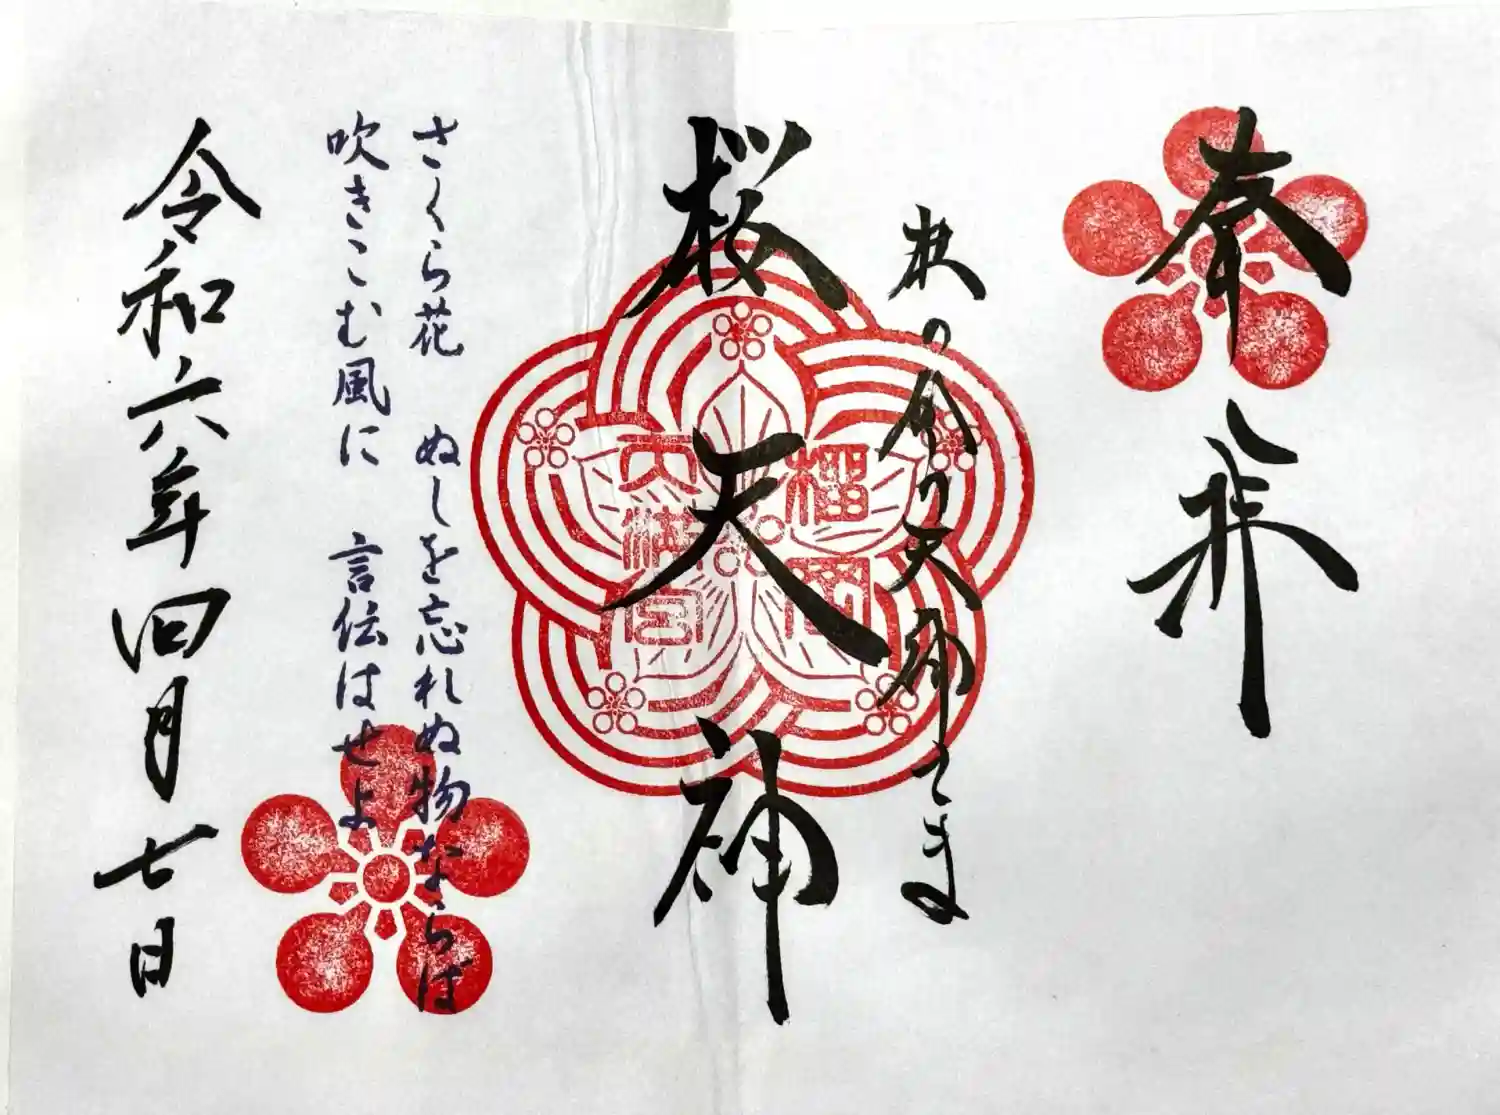 奉拝
天神さま
桜天神
榴岡
天満宮
さくら花 ぬしを忘れぬ物ならば
吹きこむ風に 言伝はせよ
令和六年四月七日